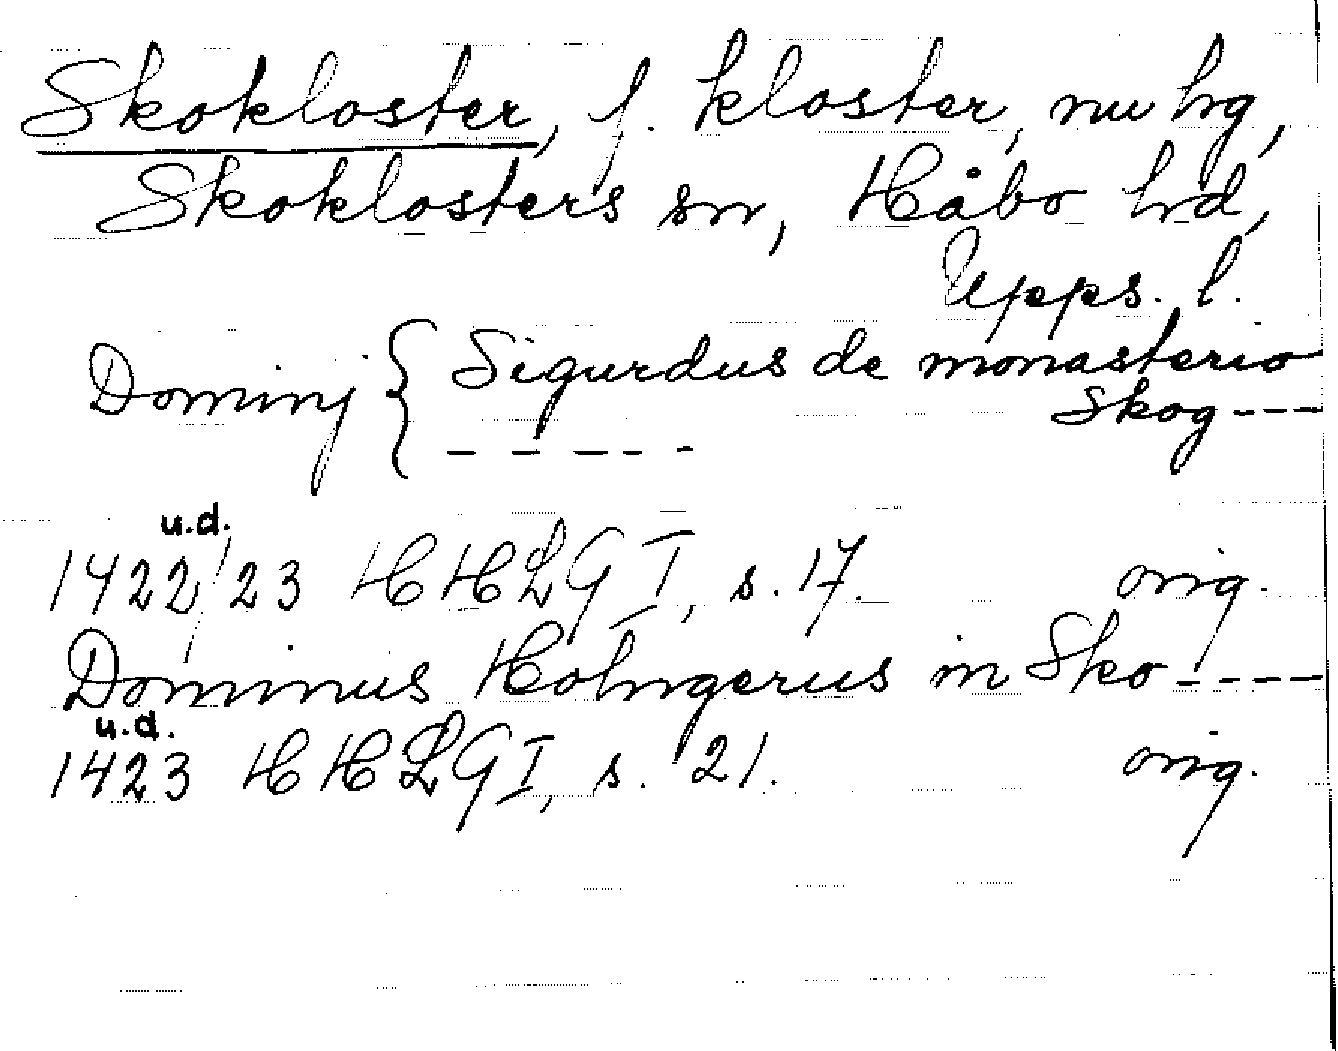 Skokloster, f. kloster, nu hg,
Skoklosters sn, Håbo hd,
Upps. l.
Dominj { Sigurdus de monasterio
Skog ---
- - - - -
u.d.
1422/23 HHLG I, s. 17. orig.
Dominus Holmgerus in Sko - - - -
u.d.
1423 HHLG I, s. 21. orig.